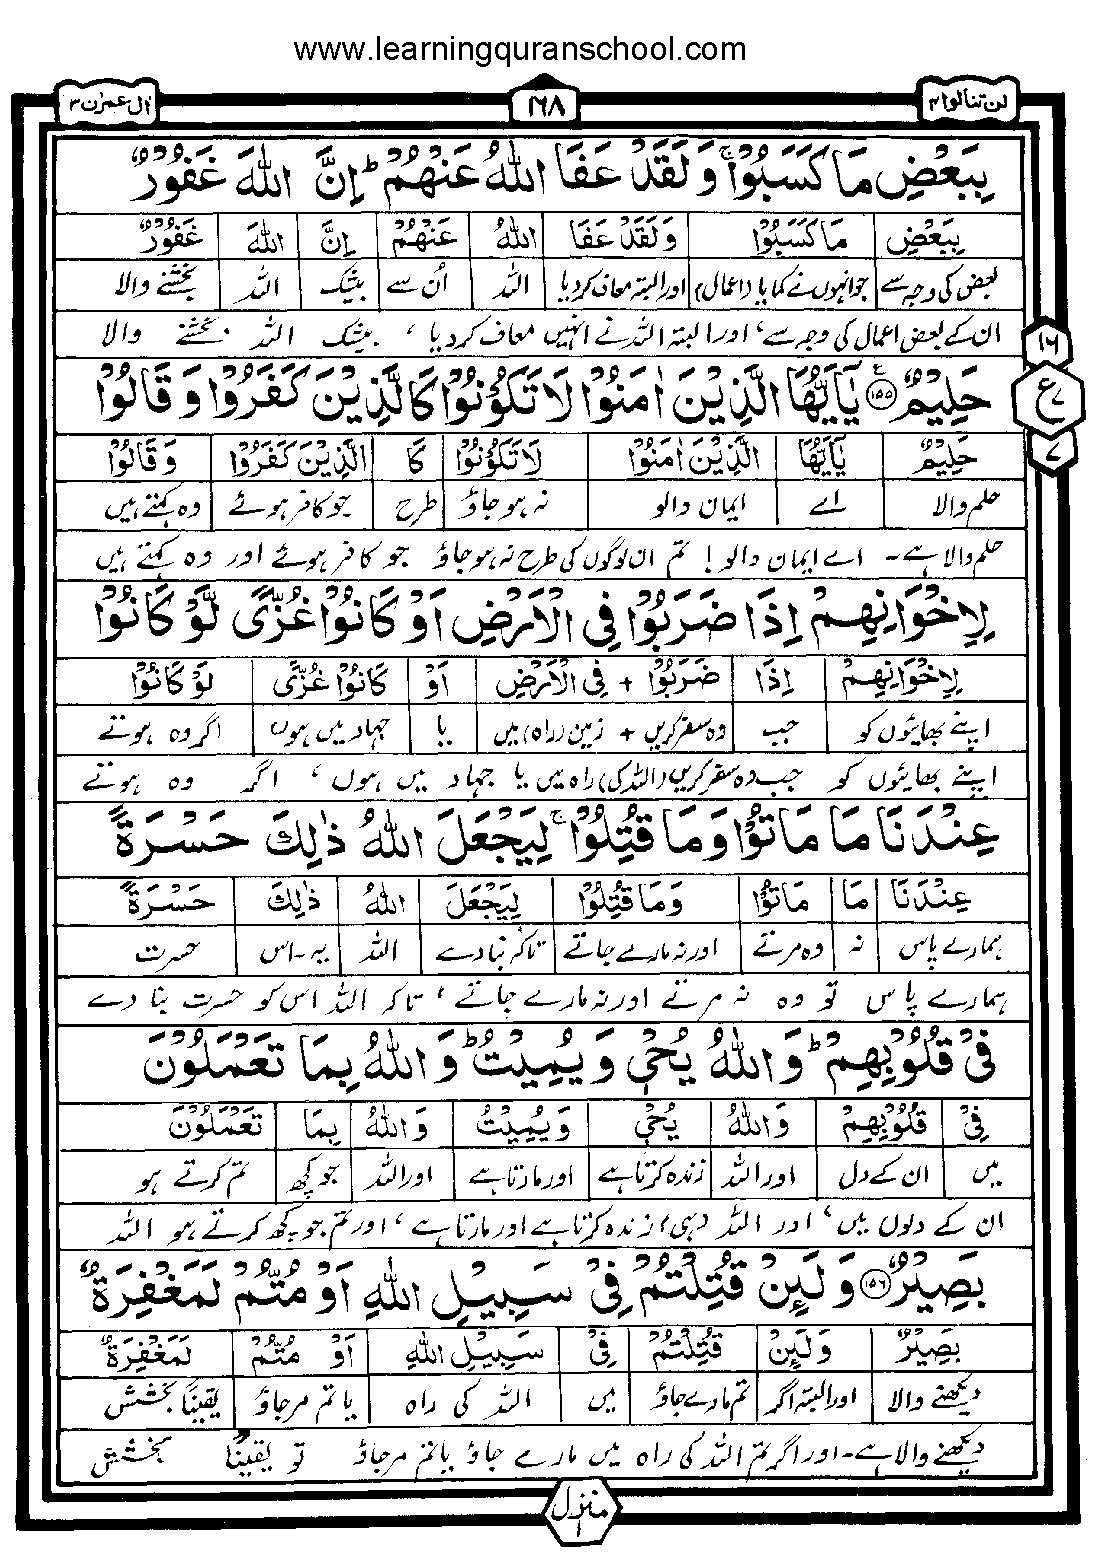 www.learningquranschool.com
لن تنالوا ۴ ۱۶۸ اٰل عمرٰن ۳
بِبَعْضِ مَا كَسَبُوْا ۚ وَ لَقَدْ عَفَا اللّٰهُ عَنْهُمْ ؕ اِنَّ اللّٰهَ غَفُوْرٌ
بِبَعْضِ مَا كَسَبُوْا وَ لَقَدْ عَفَا اللّٰهُ عَنْهُمْ اِنَّ اللّٰهَ غَفُوْرٌ
بعض کی وجہ سے جو انہوں نے کمایا (اعمال) اور البتہ معاف کر دیا اللہ اُن سے بیشک اللہ بخشنے والا
ان کے بعض اعمال کی وجہ سے، اور البتہ اللہ نے انہیں معاف کر دیا، بیشک اللہ بخشنے والا
۱۶
حَلِيْمٌ ۧ ۱۵۵ يٰۤاَيُّهَا الَّذِيْنَ اٰمَنُوْا لَا تَكُوْنُوْا كَالَّذِيْنَ كَفَرُوْا وَ قَالُوْا
ع ۷
حَلِيْمٌ يٰۤاَيُّهَا الَّذِيْنَ اٰمَنُوْا لَا تَكُوْنُوْا كَا الَّذِيْنَ كَفَرُوْا وَ قَالُوْا
۷
حلم والا اے ایمان والو نہ ہو جاؤ طرح جو کافر ہوئے وہ کہتے ہیں
حلم والا ہے۔ اے ایمان والو! تم ان لوگوں کی طرح نہ ہو جاؤ جو کافر ہوئے اور وہ کہتے ہیں
لِاِخْوَانِهِمْ اِذَا ضَرَبُوْا فِي الْاَرْضِ اَوْ كَانُوْا غُزًّى لَّوْ كَانُوْا
لِاِخْوَانِهِمْ اِذَا ضَرَبُوْا + فِي الْاَرْضِ اَوْ كَانُوْا غُزًّى لَوْ كَانُوْا
اپنے بھائیوں کو جب وہ سفر کریں + زمین (راہ) میں یا جہاد میں ہوں اگر وہ ہوتے
اپنے بھائیوں کو جب وہ سفر کریں (اللہ کی) راہ میں یا جہاد میں ہوں، اگر وہ ہوتے
عِنْدَنَا مَا مَاتُوْا وَ مَا قُتِلُوْا ۚ لِيَجْعَلَ اللّٰهُ ذٰلِكَ حَسْرَةً
عِنْدَنَا مَا مَاتُوْا وَ مَا قُتِلُوْا لِيَجْعَلَ اللّٰهُ ذٰلِكَ حَسْرَةً
ہمارے پاس نہ وہ مرتے اور نہ مارے جاتے تاکہ بنا دے اللہ یہ۔اس حسرت
ہمارے پاس تو وہ نہ مرتے اور نہ مارے جاتے، تاکہ اللہ اس کو حسرت بنا دے
فِيْ قُلُوْبِهِمْ ؕ وَ اللّٰهُ يُحْيٖ وَ يُمِيْتُ ؕ وَ اللّٰهُ بِمَا تَعْمَلُوْنَ
فِيْ قُلُوْبِهِمْ وَ اللّٰهُ يُحْيٖ وَ يُمِيْتُ وَ اللّٰهُ بِمَا تَعْمَلُوْنَ
میں ان کے دل اور اللہ زندہ کرتا ہے اور مارتا ہے اور اللہ جو کچھ تم کرتے ہو
ان کے دلوں میں، اور اللہ (ہی) زندہ کرتا ہے اور مارتا ہے، اور تم جو کچھ کرتے ہو اللہ
بَصِيْرٌ ۱۵۶ وَ لَىِٕنْ قُتِلْتُمْ فِيْ سَبِيْلِ اللّٰهِ اَوْ مُتُّمْ لَمَغْفِرَةٌ
بَصِيْرٌ وَ لَىِٕنْ قُتِلْتُمْ فِيْ سَبِيْلِ اللّٰهِ اَوْ مُتُّمْ لَمَغْفِرَةٌ
دیکھنے والا اور البتہ اگر تم مارے جاؤ میں اللہ کی راہ یا تم مر جاؤ یقیناً بخشش
دیکھنے والا ہے۔ اور اگر تم اللہ کی راہ میں مارے جاؤ یا تم مر جاؤ تو یقیناً بخشش
منزل ۱